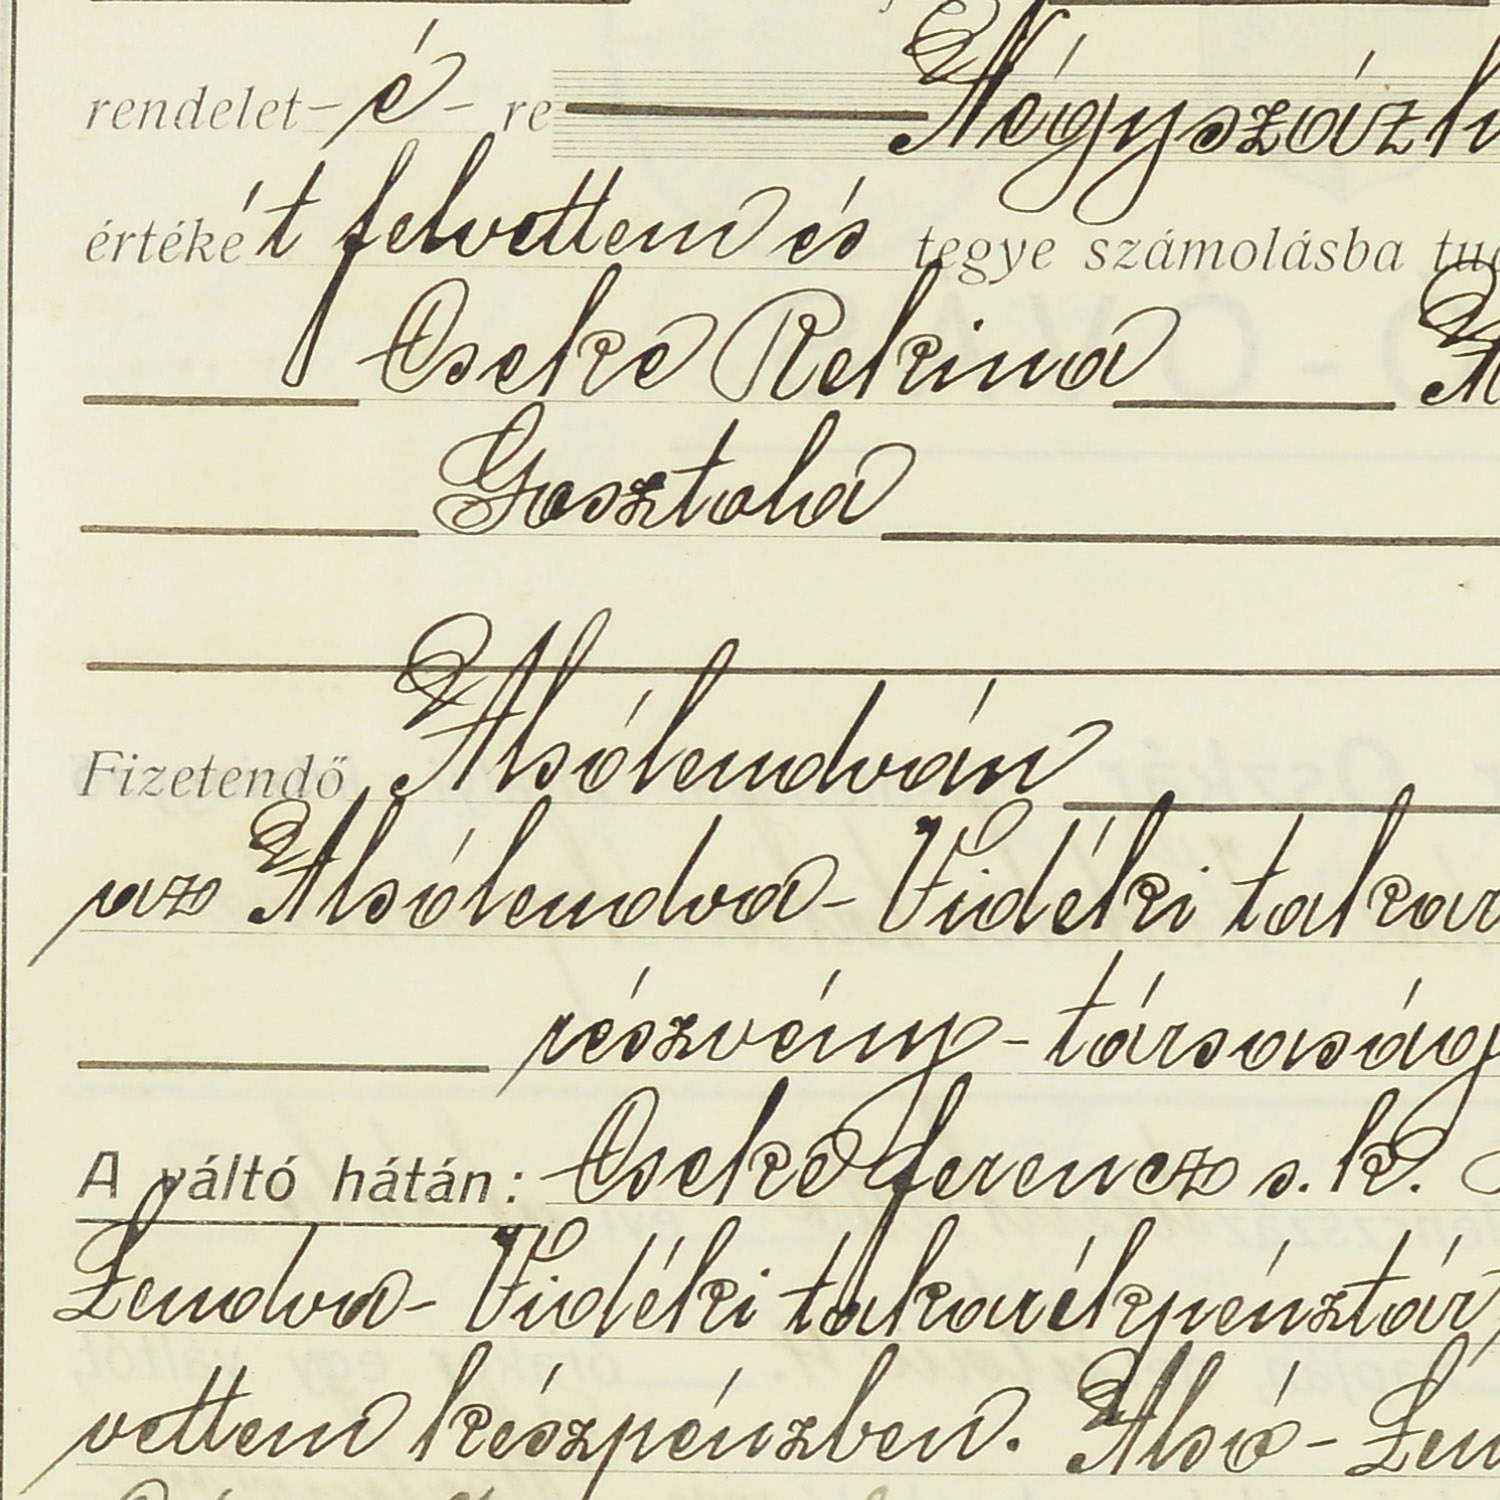 rendelet- é - re Négyszáz
értéké't felvettem és tegye számolásba
Cseke Rekina
Gosztola
Fizetendő Alsólendván
az Alsólendva-Vidéki
részvény-társaság
A váltó hátán: Cseke ferencz s. k.
Lendva-Vidéki takarékpénztár
vettem készpénzben. Alsó-